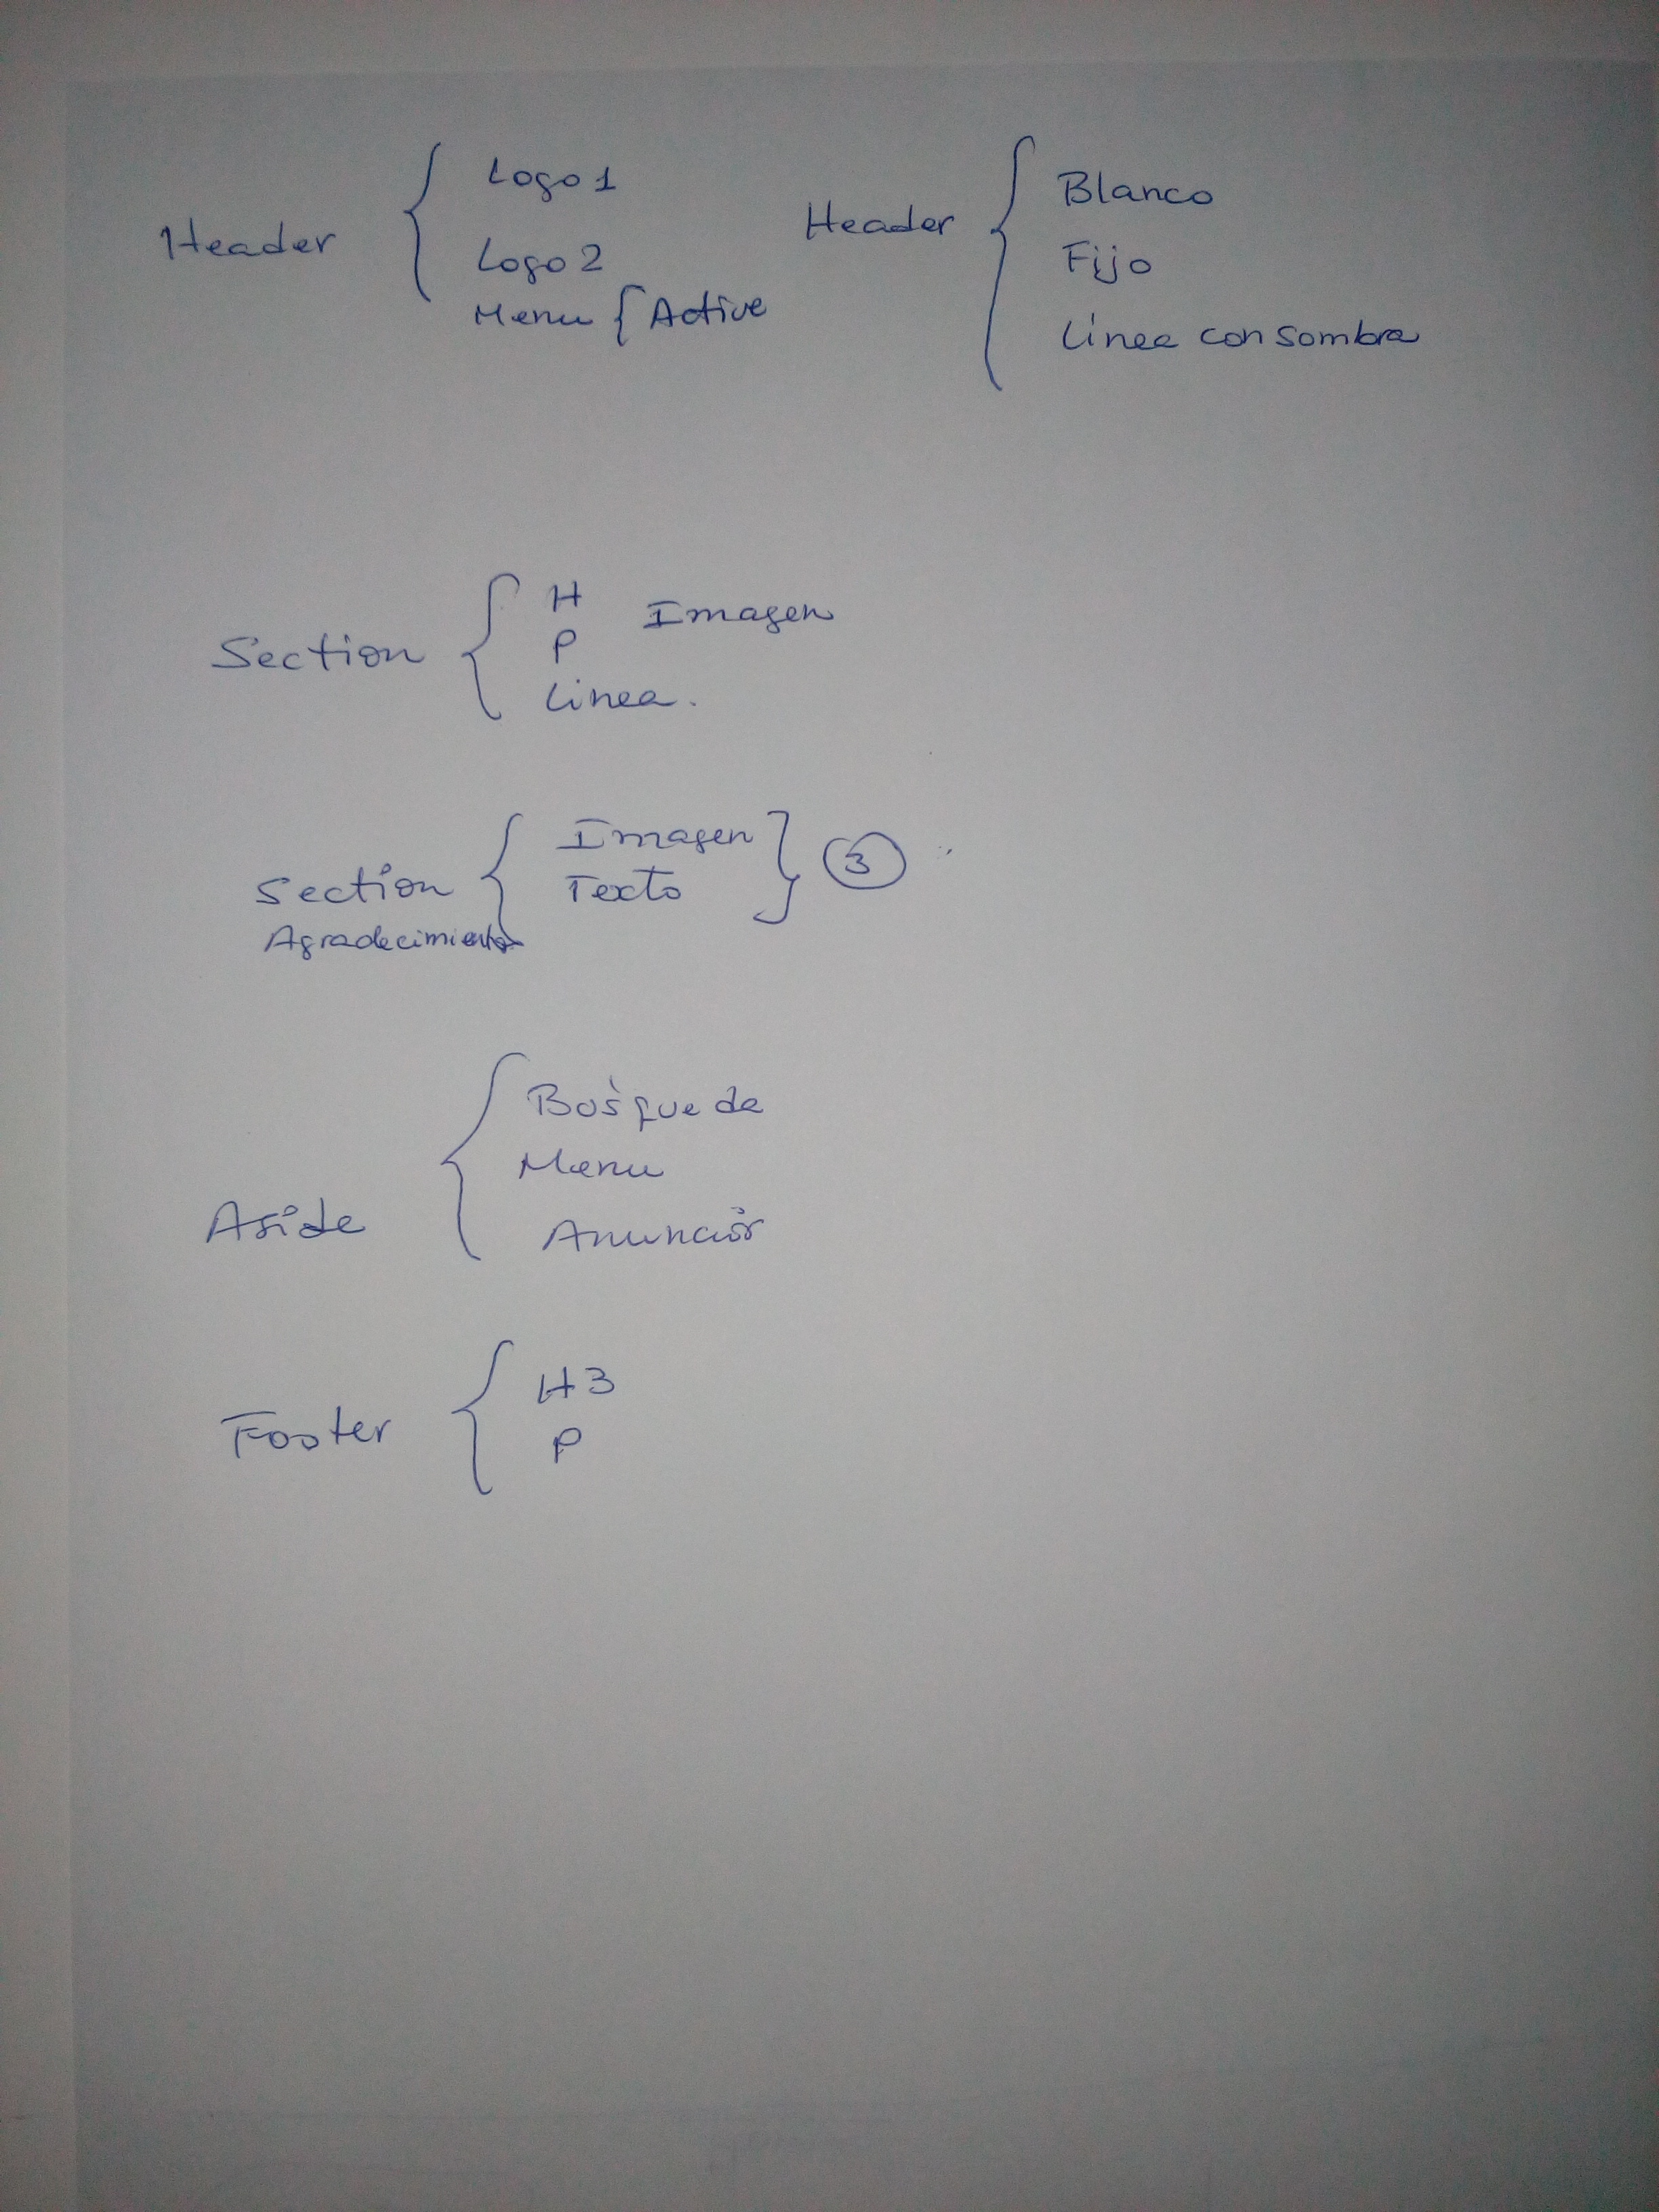 Header { Logo 1
Logo 2
Menu { Active
Header { Blanco
Fijo
Linea con sombra
Section { H Imagen
P
Linea.
Section { Imagen } 3
Agradecimiento Texto
Aside { Búsqueda
Menu
Anuncios
Footer { H3
P